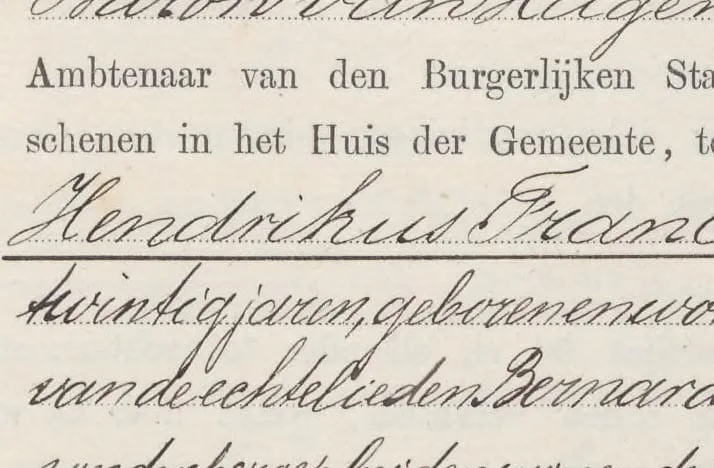 Baron van Hugen
Ambtenaar van den Burgerlijken Sta
schenen in het Huis der Gemeente, te
Hendrikus Franc
twintig jaren, geboren en wo
van de echtelieden Bernard